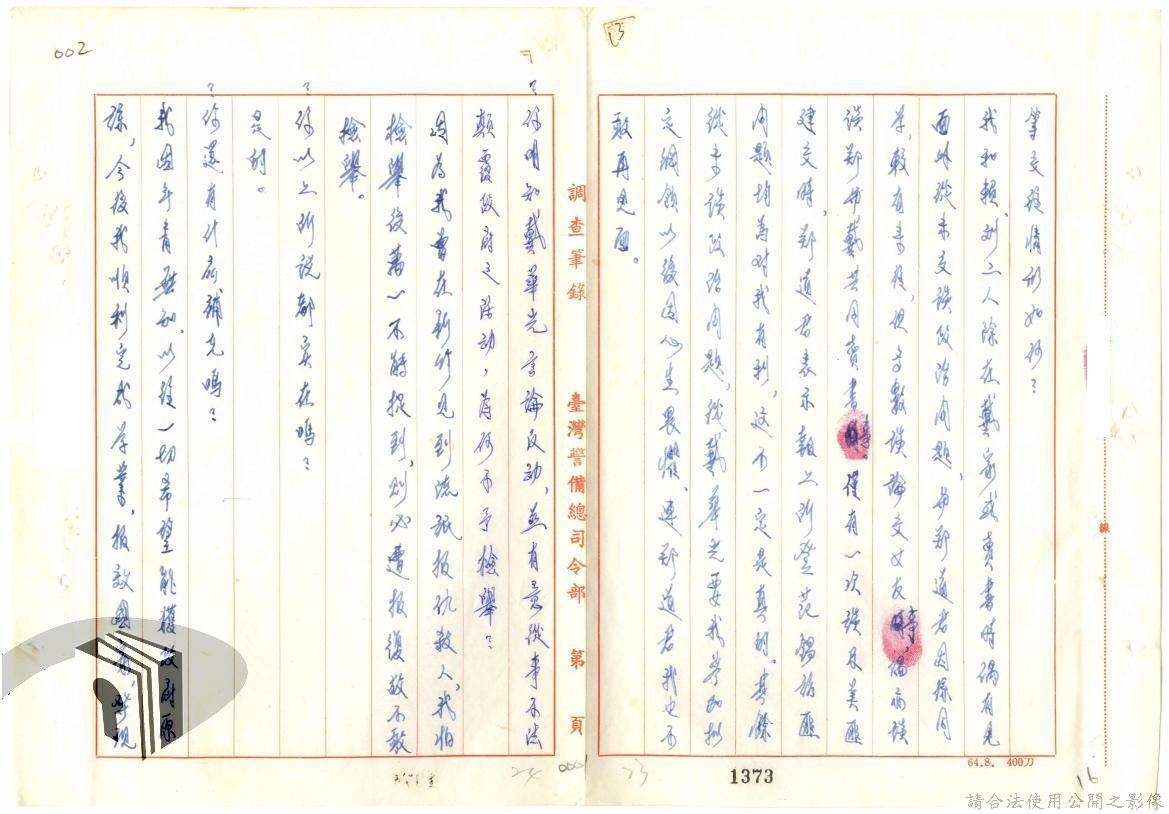 002
13
等交往情形如何?
我和賴、劉二人除在戴家或賣書時偶有見
面外從未交談政治問題,與鄭道君因係同
學,較有來往,但多數談論交女友等,偶而談
談鄭與戴共同賣書等。僅有一次談及美匪
建交時,鄭道君表示報上所登范錫訪匪
問題均為對我有利,這不一定是真的。其餘
從未談政治問題,從戴華光要我參加擬
定綱領以後因心生畏懼、連鄭道君我也不
敢再見面。
64.8. 400刀
16
線
1373
調查筆錄 臺灣警備總司令部 第 頁
?你明知戴華光言論反動,並有意從事不法
顛覆政府之活動,為何不予檢舉?
因為我曾在新竹見到流氓報仇殺人,我怕
檢舉後萬一不能捉到,則必遭報復故不敢
檢舉。
?你以上所說都實在嗎?
是的。
?你還有什麼補充嗎?
我因年青無知,以致一切希望能獲政府原
諒,今後我順利完成學業,報效國家,
請合法使用公開之影像